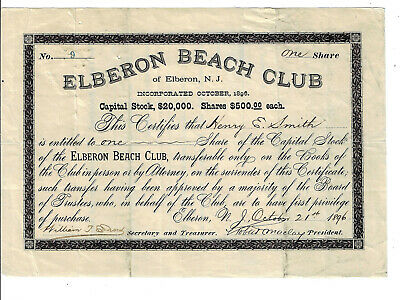 No. 9 One Share
ELBERON BEACH CLUB
of Elberon, N. J.
INCORPORATED OCTOBER, 1896.
Capital Stock, $20,000. Shares $500.00 each.
This Certifies that Henry E. Smith
is entitled to one Share of the Capital Stock
of the ELBERON BEACH CLUB, transferable only on the Books of
the Club in person or by Attorney, on the surrender of this Certificate,
such transfer having been approved by a majority of the Board
of Trustees, who, in behalf of the Club, are to have first privilege
of purchase. Elberon, N. J. October 21st 1896
William T. Secretary and Treasurer. Robert Maclay President.